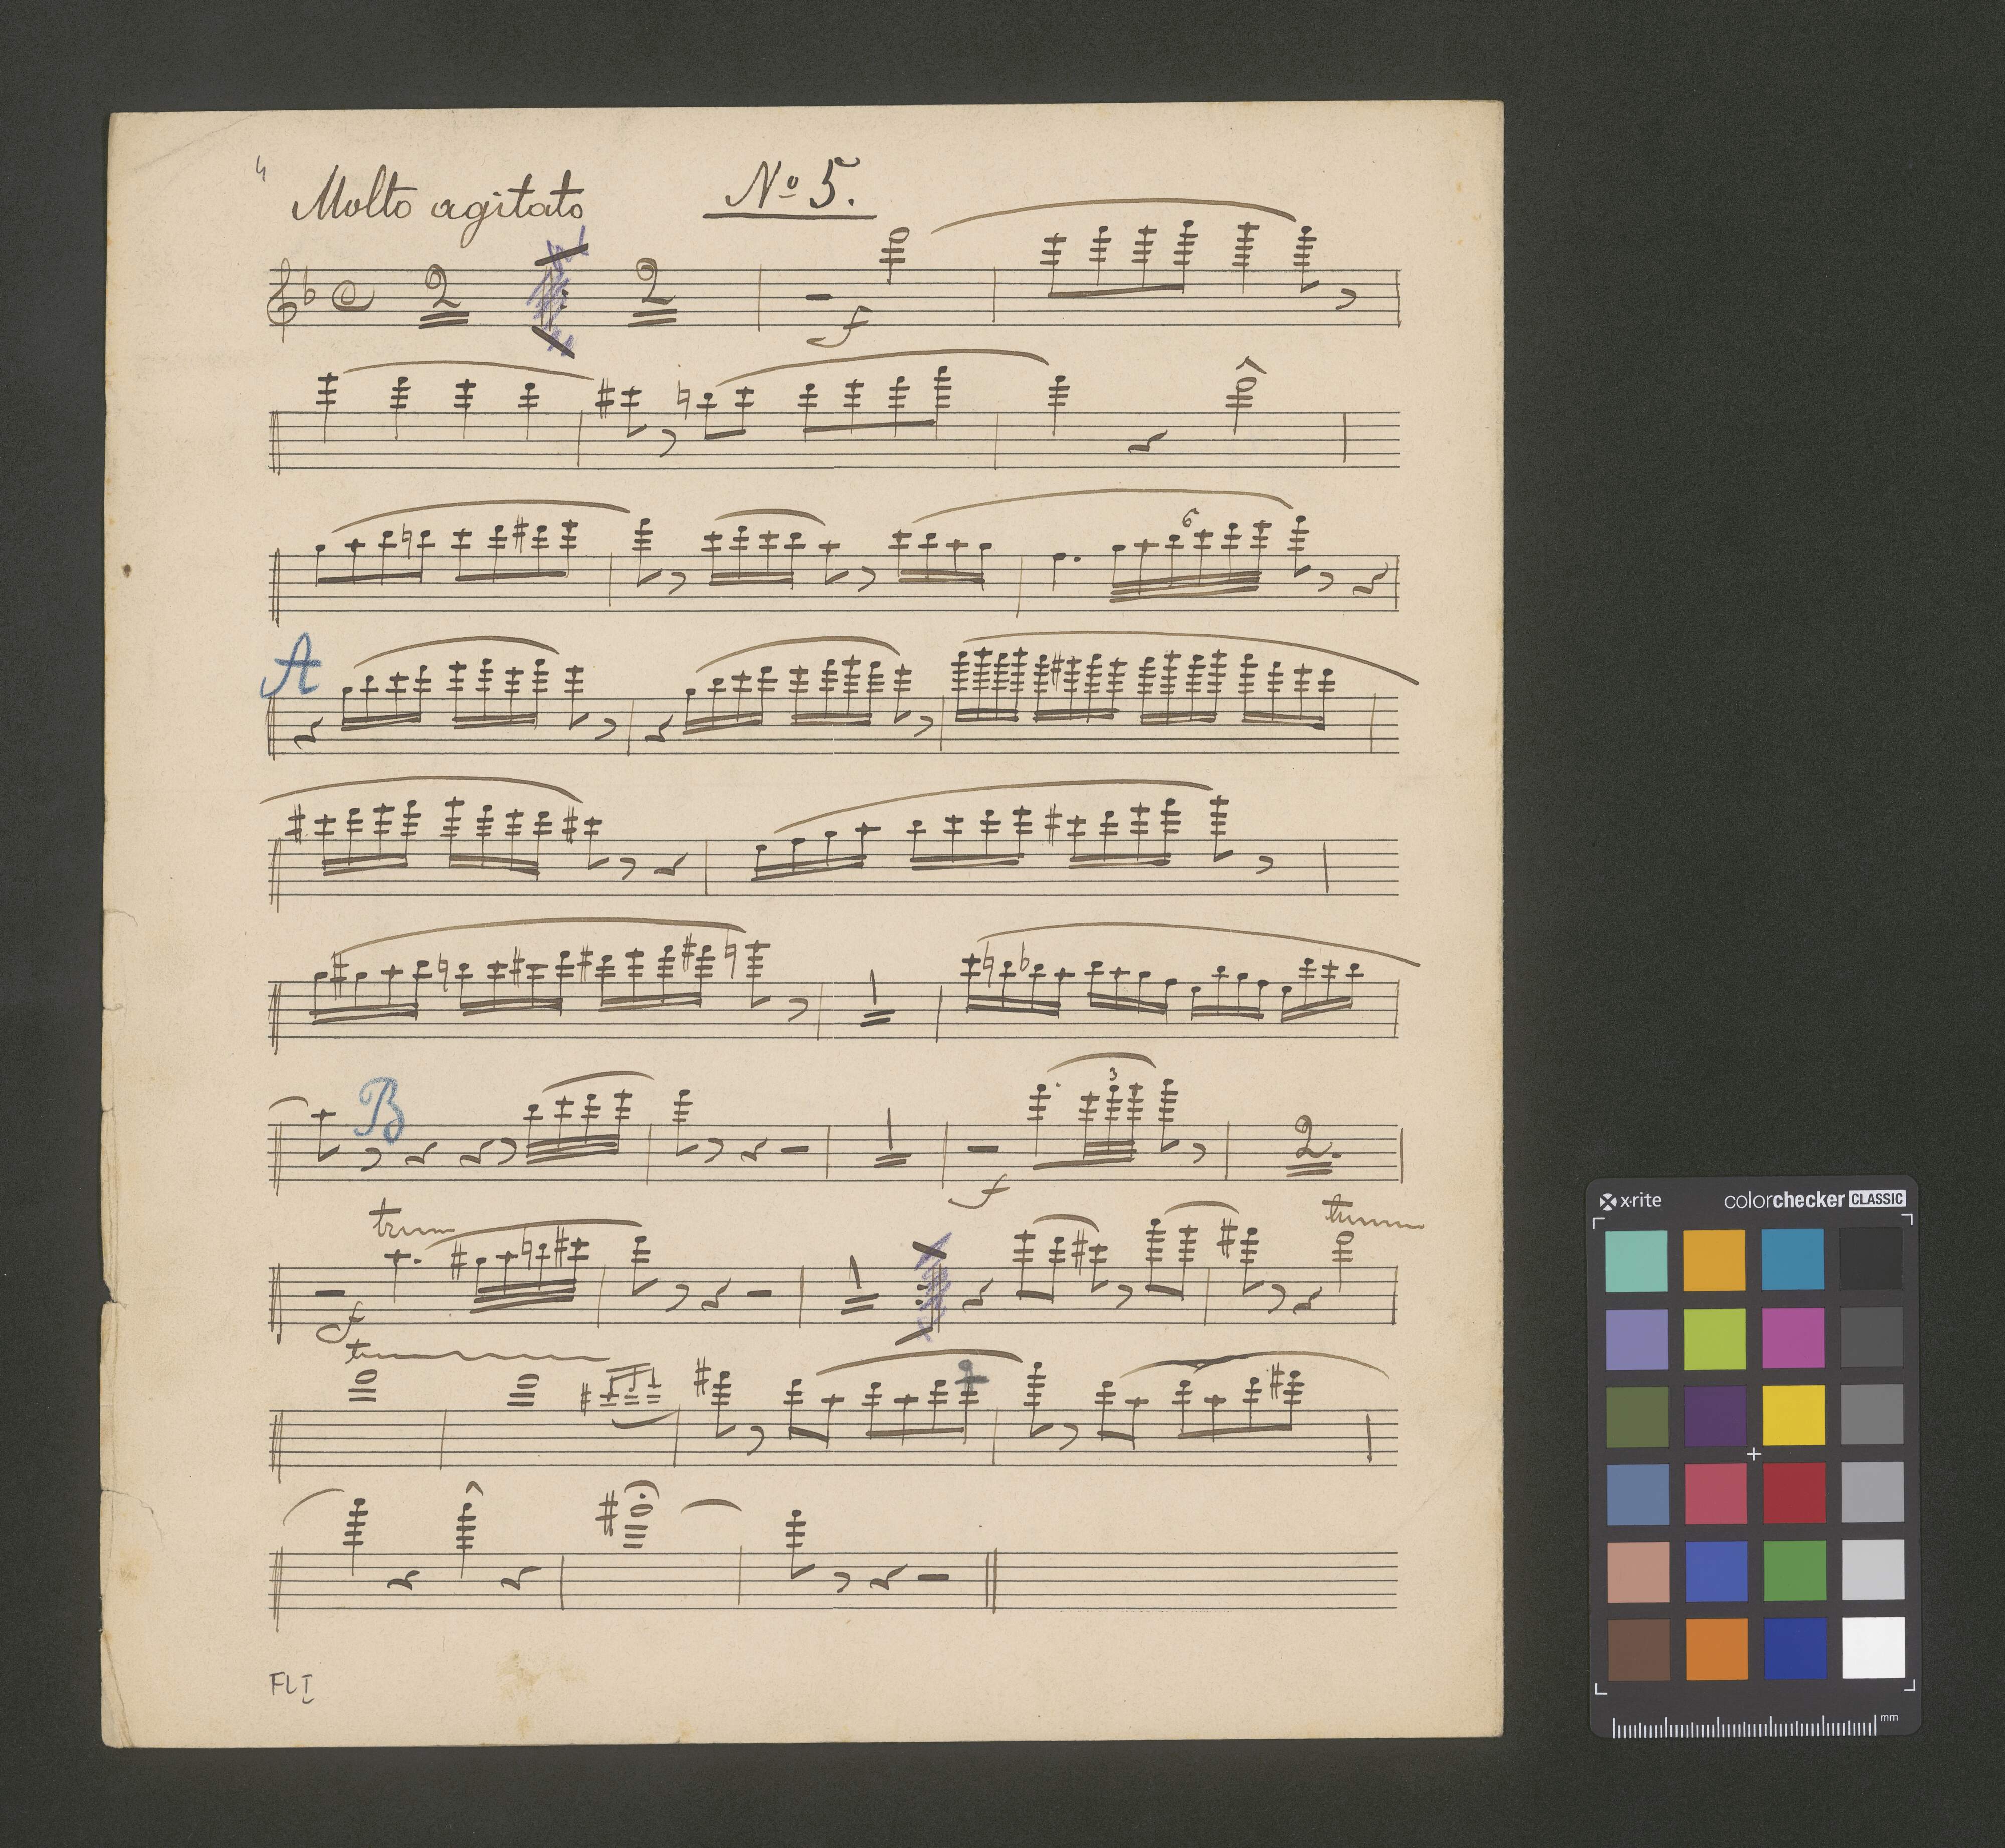 4
Molto agitato Nº 5.
2 2
f
6
A
B
3
f 2.
tr tr
f
tr
FL I
x-rite colorchecker CLASSIC
mm